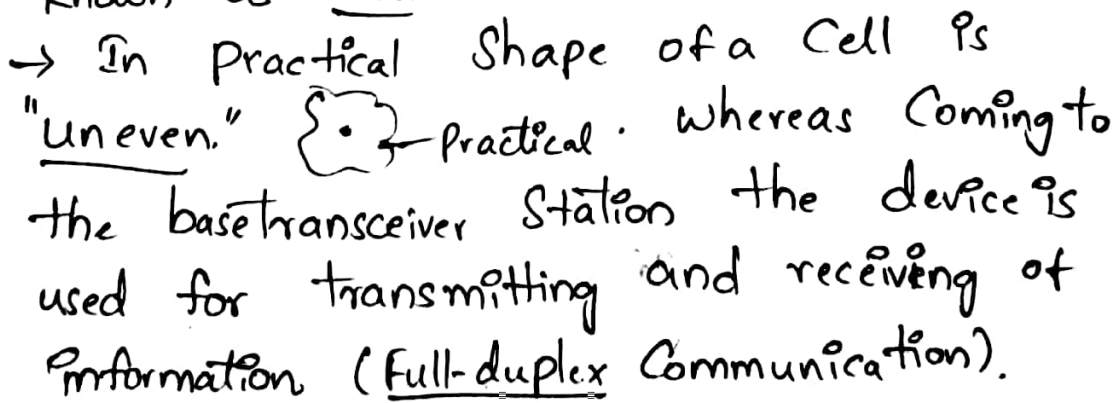 → In practical shape of a Cell is
"uneven." practical. whereas Coming to
the base transceiver Station the device is
used for transmitting and receiving of
information (Full-duplex Communication).